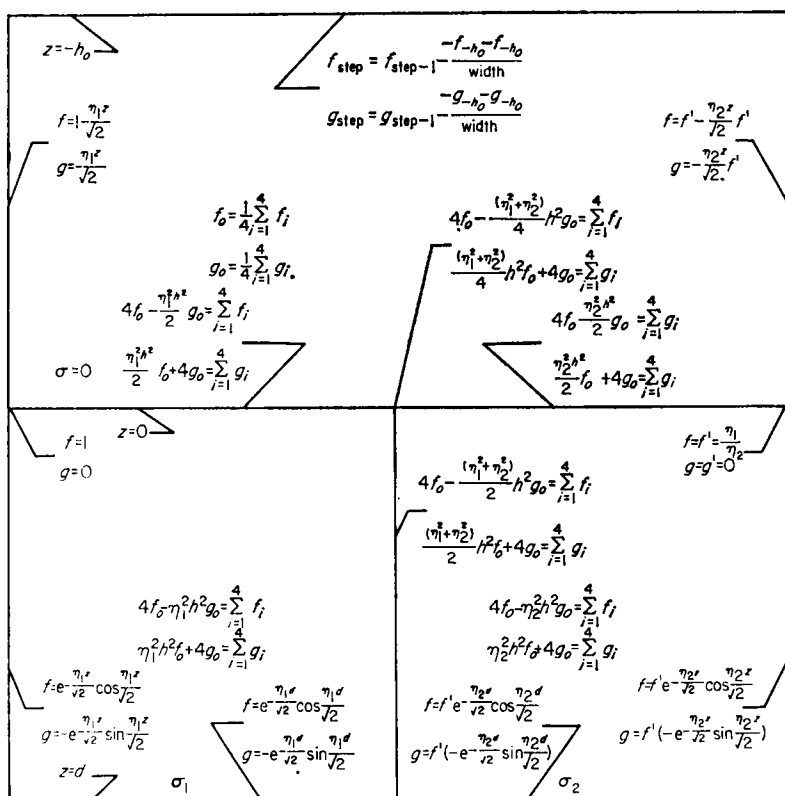 z=-h₀
f_step = f_step-1 - (-f_-h₀ - f_-h₀)/width
g_step = g_step-1 - (-g_-h₀ - g_-h₀)/width
f=1-η₁z/√2
g=-η₁z/√2
f=f'-η₂z/√2 f'
g=-η₂z/√2. f'
f₀=1/4 ∑_{i=1}^{4} f_i
g₀=1/4 ∑_{i=1}^{4} g_i.
4f₀-(η₁²+η₂²)/4 h²g₀=∑_{i=1}^{4} f_i
(η₁²+η₂²)/4 h²f₀+4g₀=∑_{i=1}^{4} g_i
4f₀-η₁²h²/2 g₀=∑_{i=1}^{4} f_i
σ=0
η₁²h²/2 f₀+4g₀=∑_{i=1}^{4} g_i
4f₀ η₂²h²/2 g₀ =∑_{i=1}^{4} g_i
η₂²h²/2 f₀ +4g₀=∑_{i=1}^{4} g_i
z=0
f=1
g=0
f=f'=η₁/η₂
g=g'=0
4f₀-(η₁²+η₂²)/2 h²g₀=∑_{i=1}^{4} f_i
(η₁²+η₂²)/2 h²f₀+4g₀=∑_{i=1}^{4} g_i
4f₀-η₁²h²g₀=∑_{i=1}^{4} f_i
η₁²h²f₀+4g₀=∑_{i=1}^{4} g_i
4f₀-η₂²h²g₀=∑_{i=1}^{4} f_i
η₂²h²f₀+4g₀=∑_{i=1}^{4} g_i
f=e^{-η₁z/√2} cos η₁z/√2
g=-e^{-η₁z/√2} sin η₁z/√2
f=e^{-η₁d/√2} cos η₁d/√2
g=-e^{-η₁d/√2} sin η₁d/√2
f=f'e^{-η₂d/√2} cos η₂d/√2
g=f'(-e^{-η₂d/√2} sin η₂d/√2)
f=f'e^{-η₂z/√2} cos η₂z/√2
g=f'(-e^{-η₂z/√2} sin η₂z/√2)
z=d
σ₁
σ₂